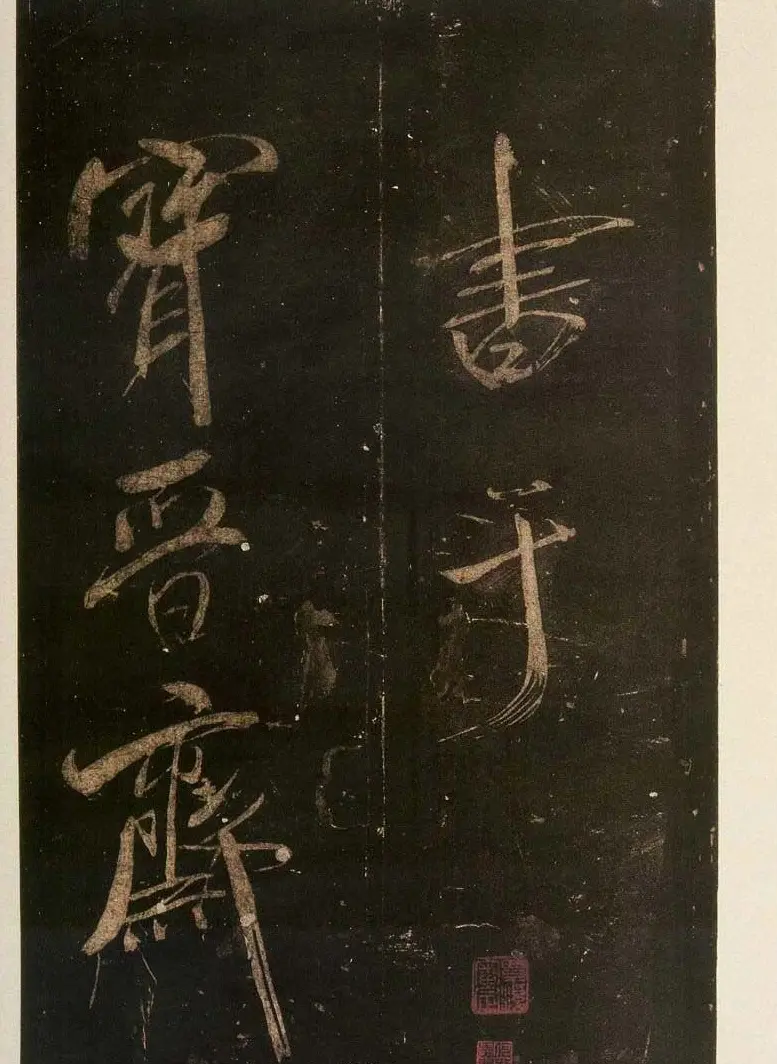 書于
寶晉齋